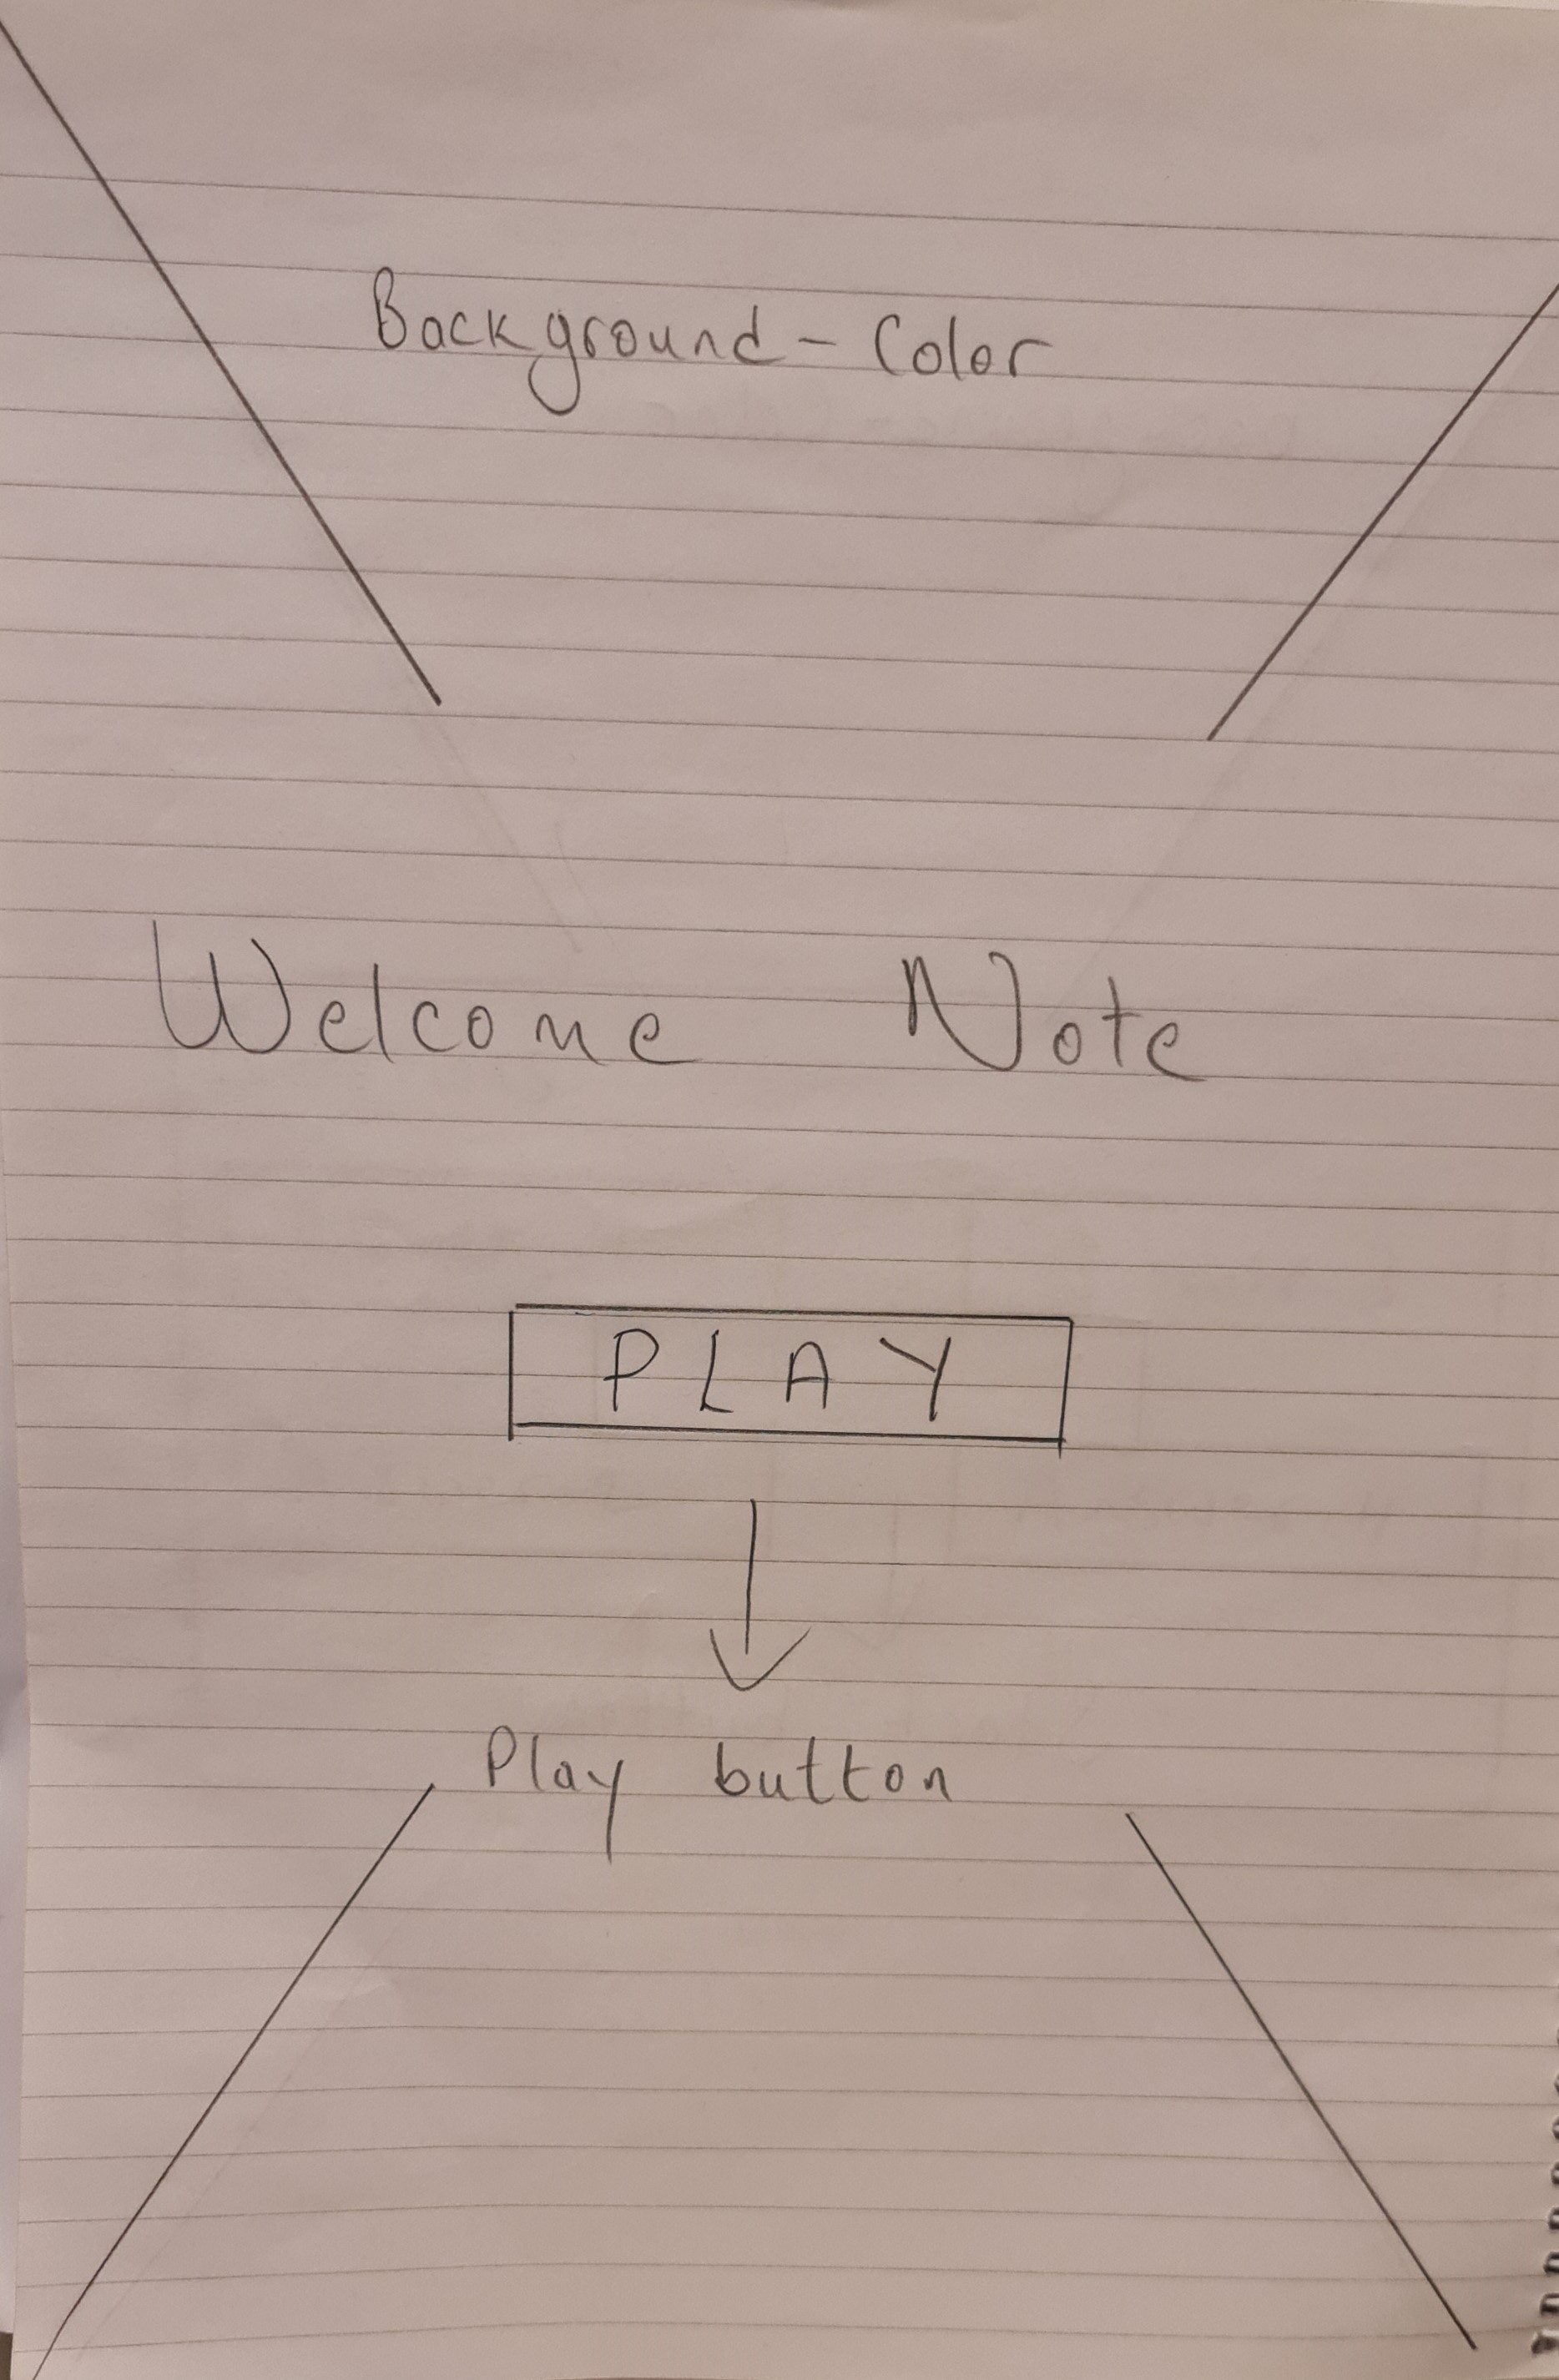 Background - Color
Welcome Note
PLAY
Play button